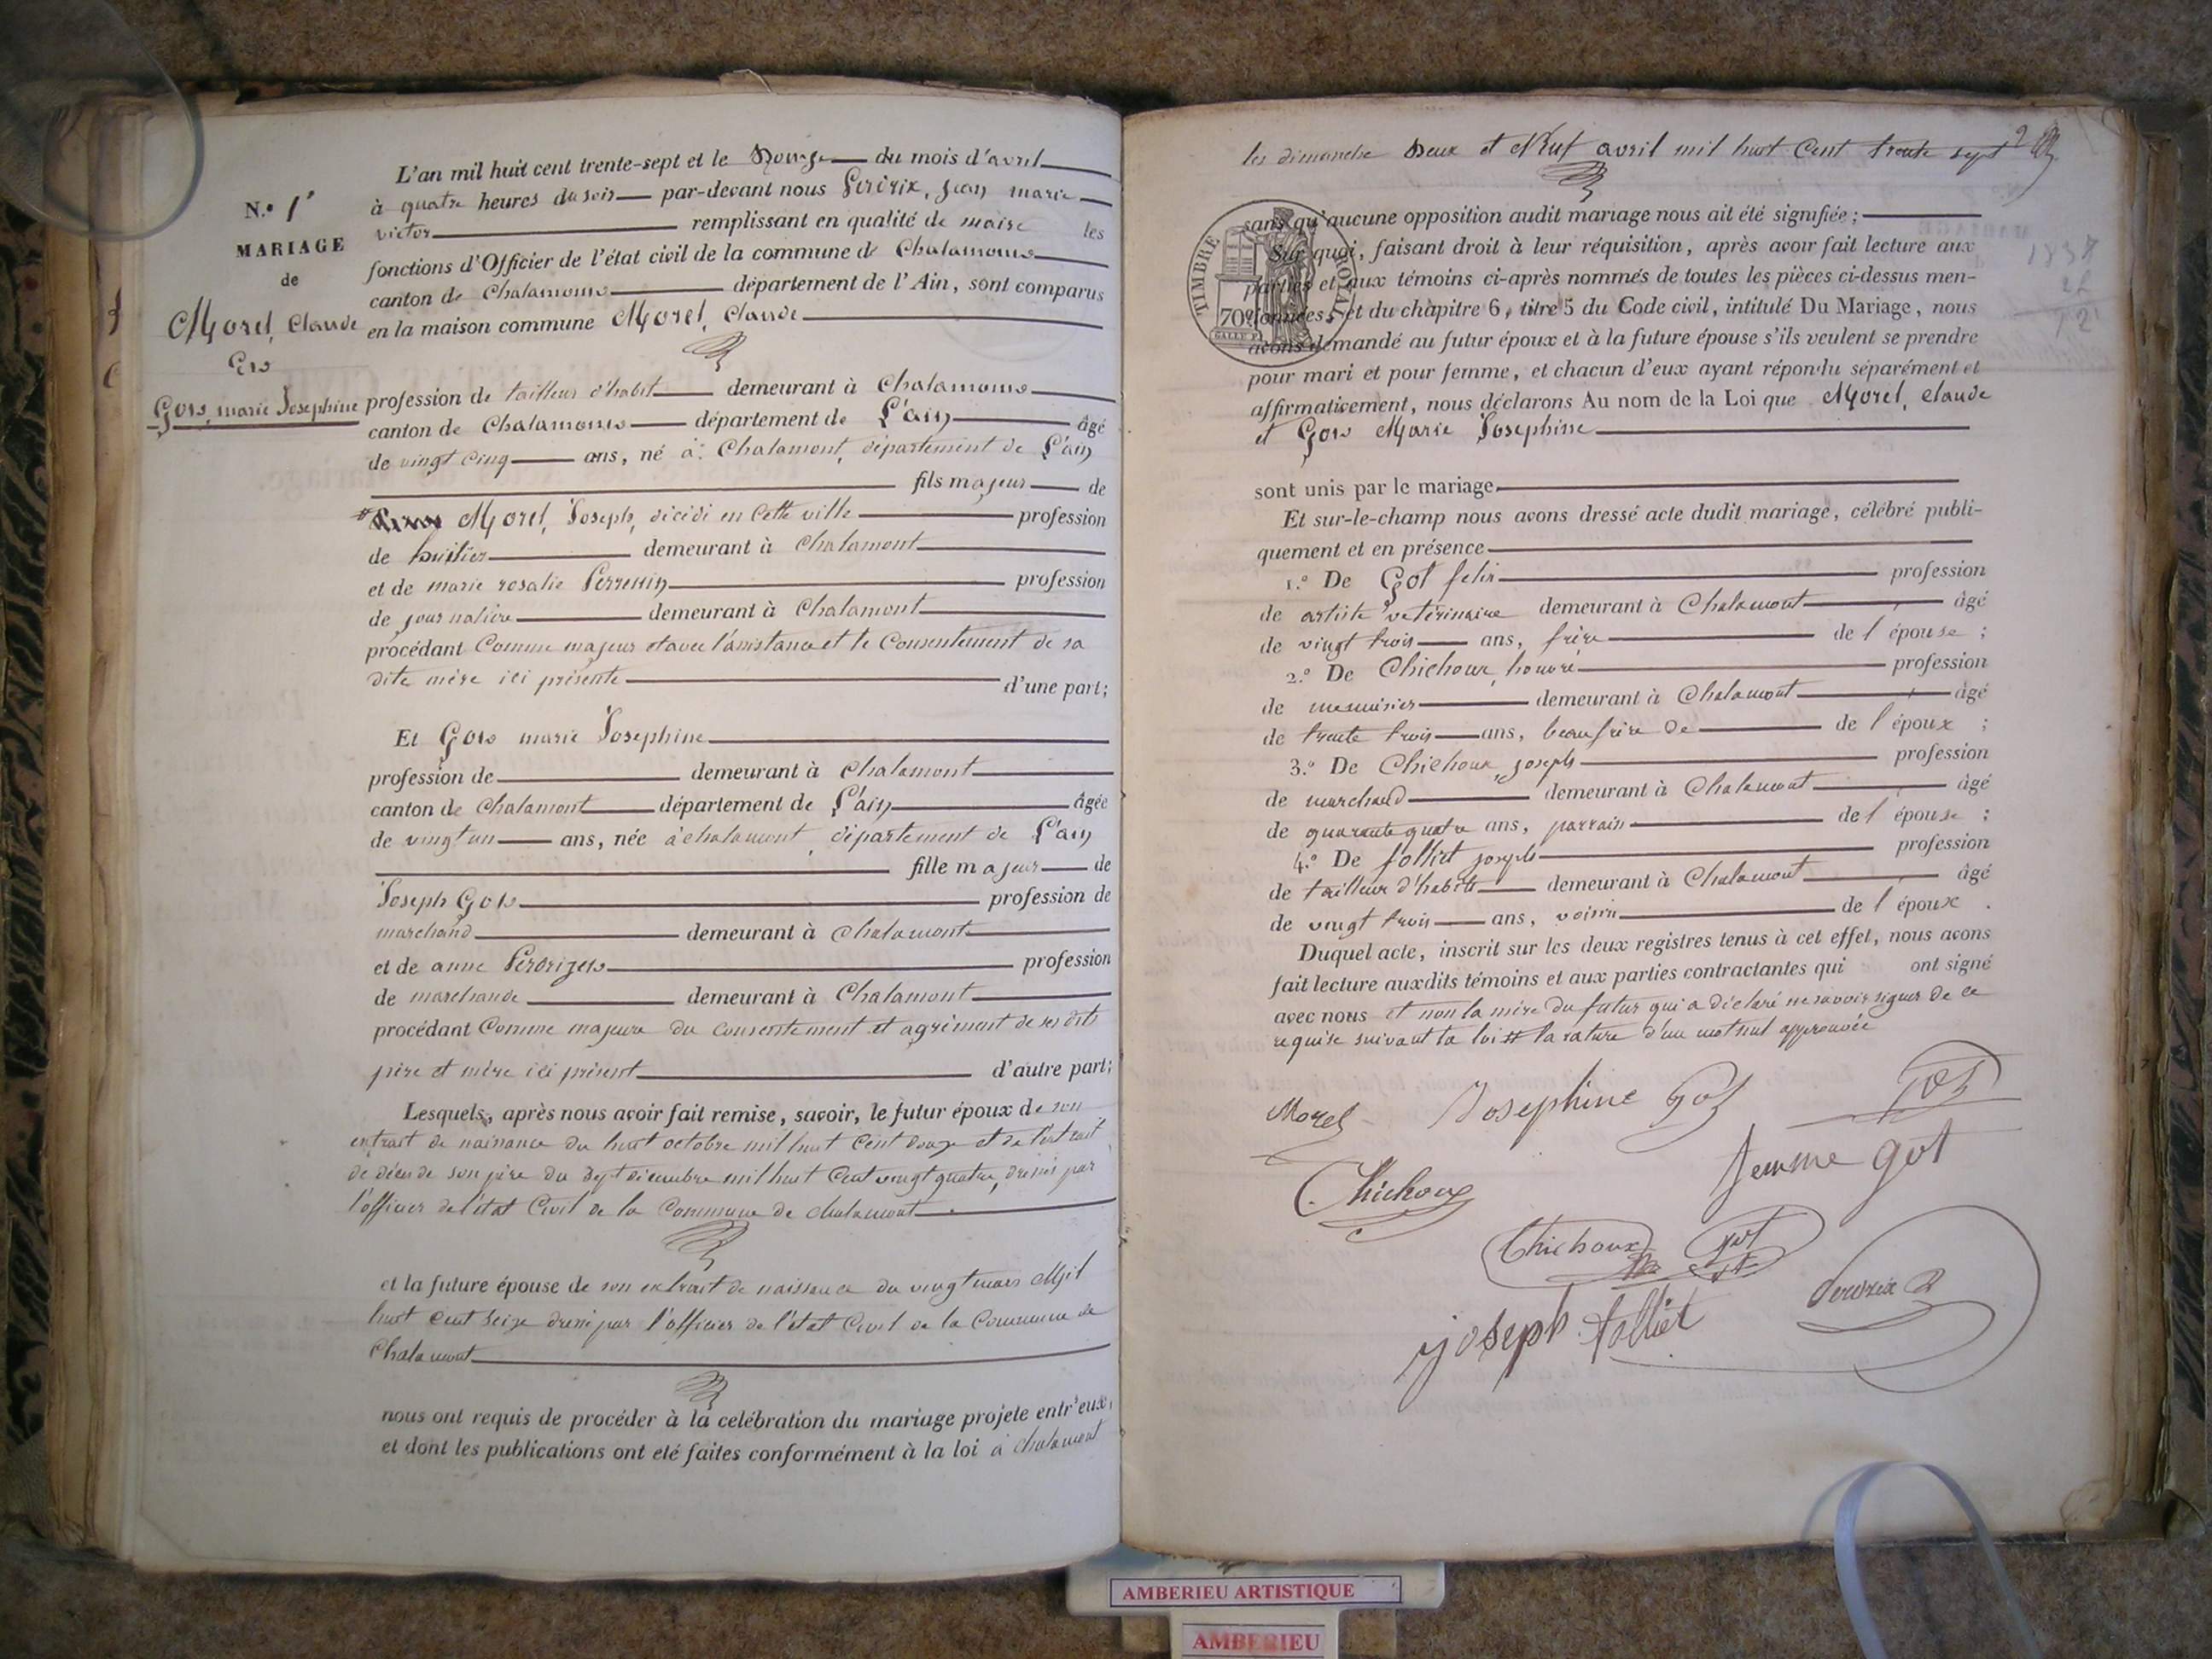 L'an mil huit cent trente-sept et le Douze du mois d'avril
à quatre heures du soir par-devant nous Perdrix, jean marie
victor remplissant en qualité de maire les
fonctions d'Officier de l'état civil de la commune de Chalamont
canton de Chalamont département de l'Ain, sont comparus
en la maison commune Morel, Claude
N.º 1er
MARIAGE
de
Morel, Claude
Et
Gots, marie Josephine
profession de tailleur d'habit demeurant à Chalamont
canton de Chalamont département de L'ain âgé
de vingt cinq ans, né à Chalamont, département de L'ain
fils majeur de
Morel, Joseph, décédé en cette ville profession
de huilier demeurant à Chalamont
et de marie rosalie profession
de journalière demeurant à Chalamont
procédant Comme majeur et avec l'assistance et le Consentement de sa
dite mère ici présente d'une part;
Et Gots marie Josephine
profession de demeurant à Chalamont
canton de Chalamont département de L'ain âgée
de vingt un ans, née à chalamont, département de L'ain
fille majeur de
Joseph Gots profession de
marchand demeurant à Chalamont
et de anne profession
de marchande demeurant à Chalamont
procédant Comme majeure du consentement et agrément de ses dits
père et mère ici présent d'autre part;
Lesquels, après nous avoir fait remise, savoir, le futur époux de son
extrait de naissance du huit octobre mil huit Cent douze et de l'extrait
de décès de son père du sept décembre mil huit Cent vingt quatre, dressés par
l'officier de l'état Civil de la Commune de chalamont
et la future épouse de son extrait de naissance du vingt mars Mil
huit Cent seize dressé par l'officier de l'état Civil de la Commune de
Chalamont
nous ont requis de procéder à la celébration du mariage projeté entr'eux,
et dont les publications ont été faites conformément à la loi à chalamont
les dimanche Deux et Neuf avril mil huit Cent trente sept
TIMBRE ROYAL
70c
GALLE F.
1837
sans qu'aucune opposition audit mariage nous ait été signifiée;
Sur quoi, faisant droit à leur réquisition, après avoir fait lecture aux
parties et aux témoins ci-après nommés de toutes les pièces ci-dessus men-
tionnées, et du chapitre 6, titre 5 du Code civil, intitulé Du Mariage, nous
avons demandé au futur époux et à la future épouse s'ils veulent se prendre
pour mari et pour femme, et chacun d'eux ayant répondu séparément et
affirmativement, nous déclarons Au nom de la Loi que Morel, Claude
et Gots Marie Josephine
sont unis par le mariage
Et sur-le-champ nous avons dressé acte dudit mariage, célébré publi-
quement et en présence
1.º De Got felix profession
de artiste vétérinaire demeurant à Chalamont âgé
de vingt trois ans, frère de l'épouse;
2.º De Chichoux, honoré profession
de menuisier demeurant à Chalamont âgé
de trente trois ans, beau frère de de l'époux;
3.º De Chichoux, joseph profession
de marchand demeurant à Chalamont âgé
de quarante quatre ans, parrain de l'épouse;
4.º De folliet joseph profession
de tailleur d'habits demeurant à Chalamont âgé
de vingt trois ans, voisin de l'époux.
Duquel acte, inscrit sur les deux registres tenus à cet effet, nous avons
fait lecture auxdits témoins et aux parties contractantes qui ont signé
avec nous et non la mère du futur qui a déclaré ne savoir signer de ce
requise suivant la loi # la rature d'un mot nul approuvée
Morel Josephine Got Got
Chichoux femme got
Chichoux got
joseph folliet Perdrix
AMBERIEU ARTISTIQUE
AMBERIEU